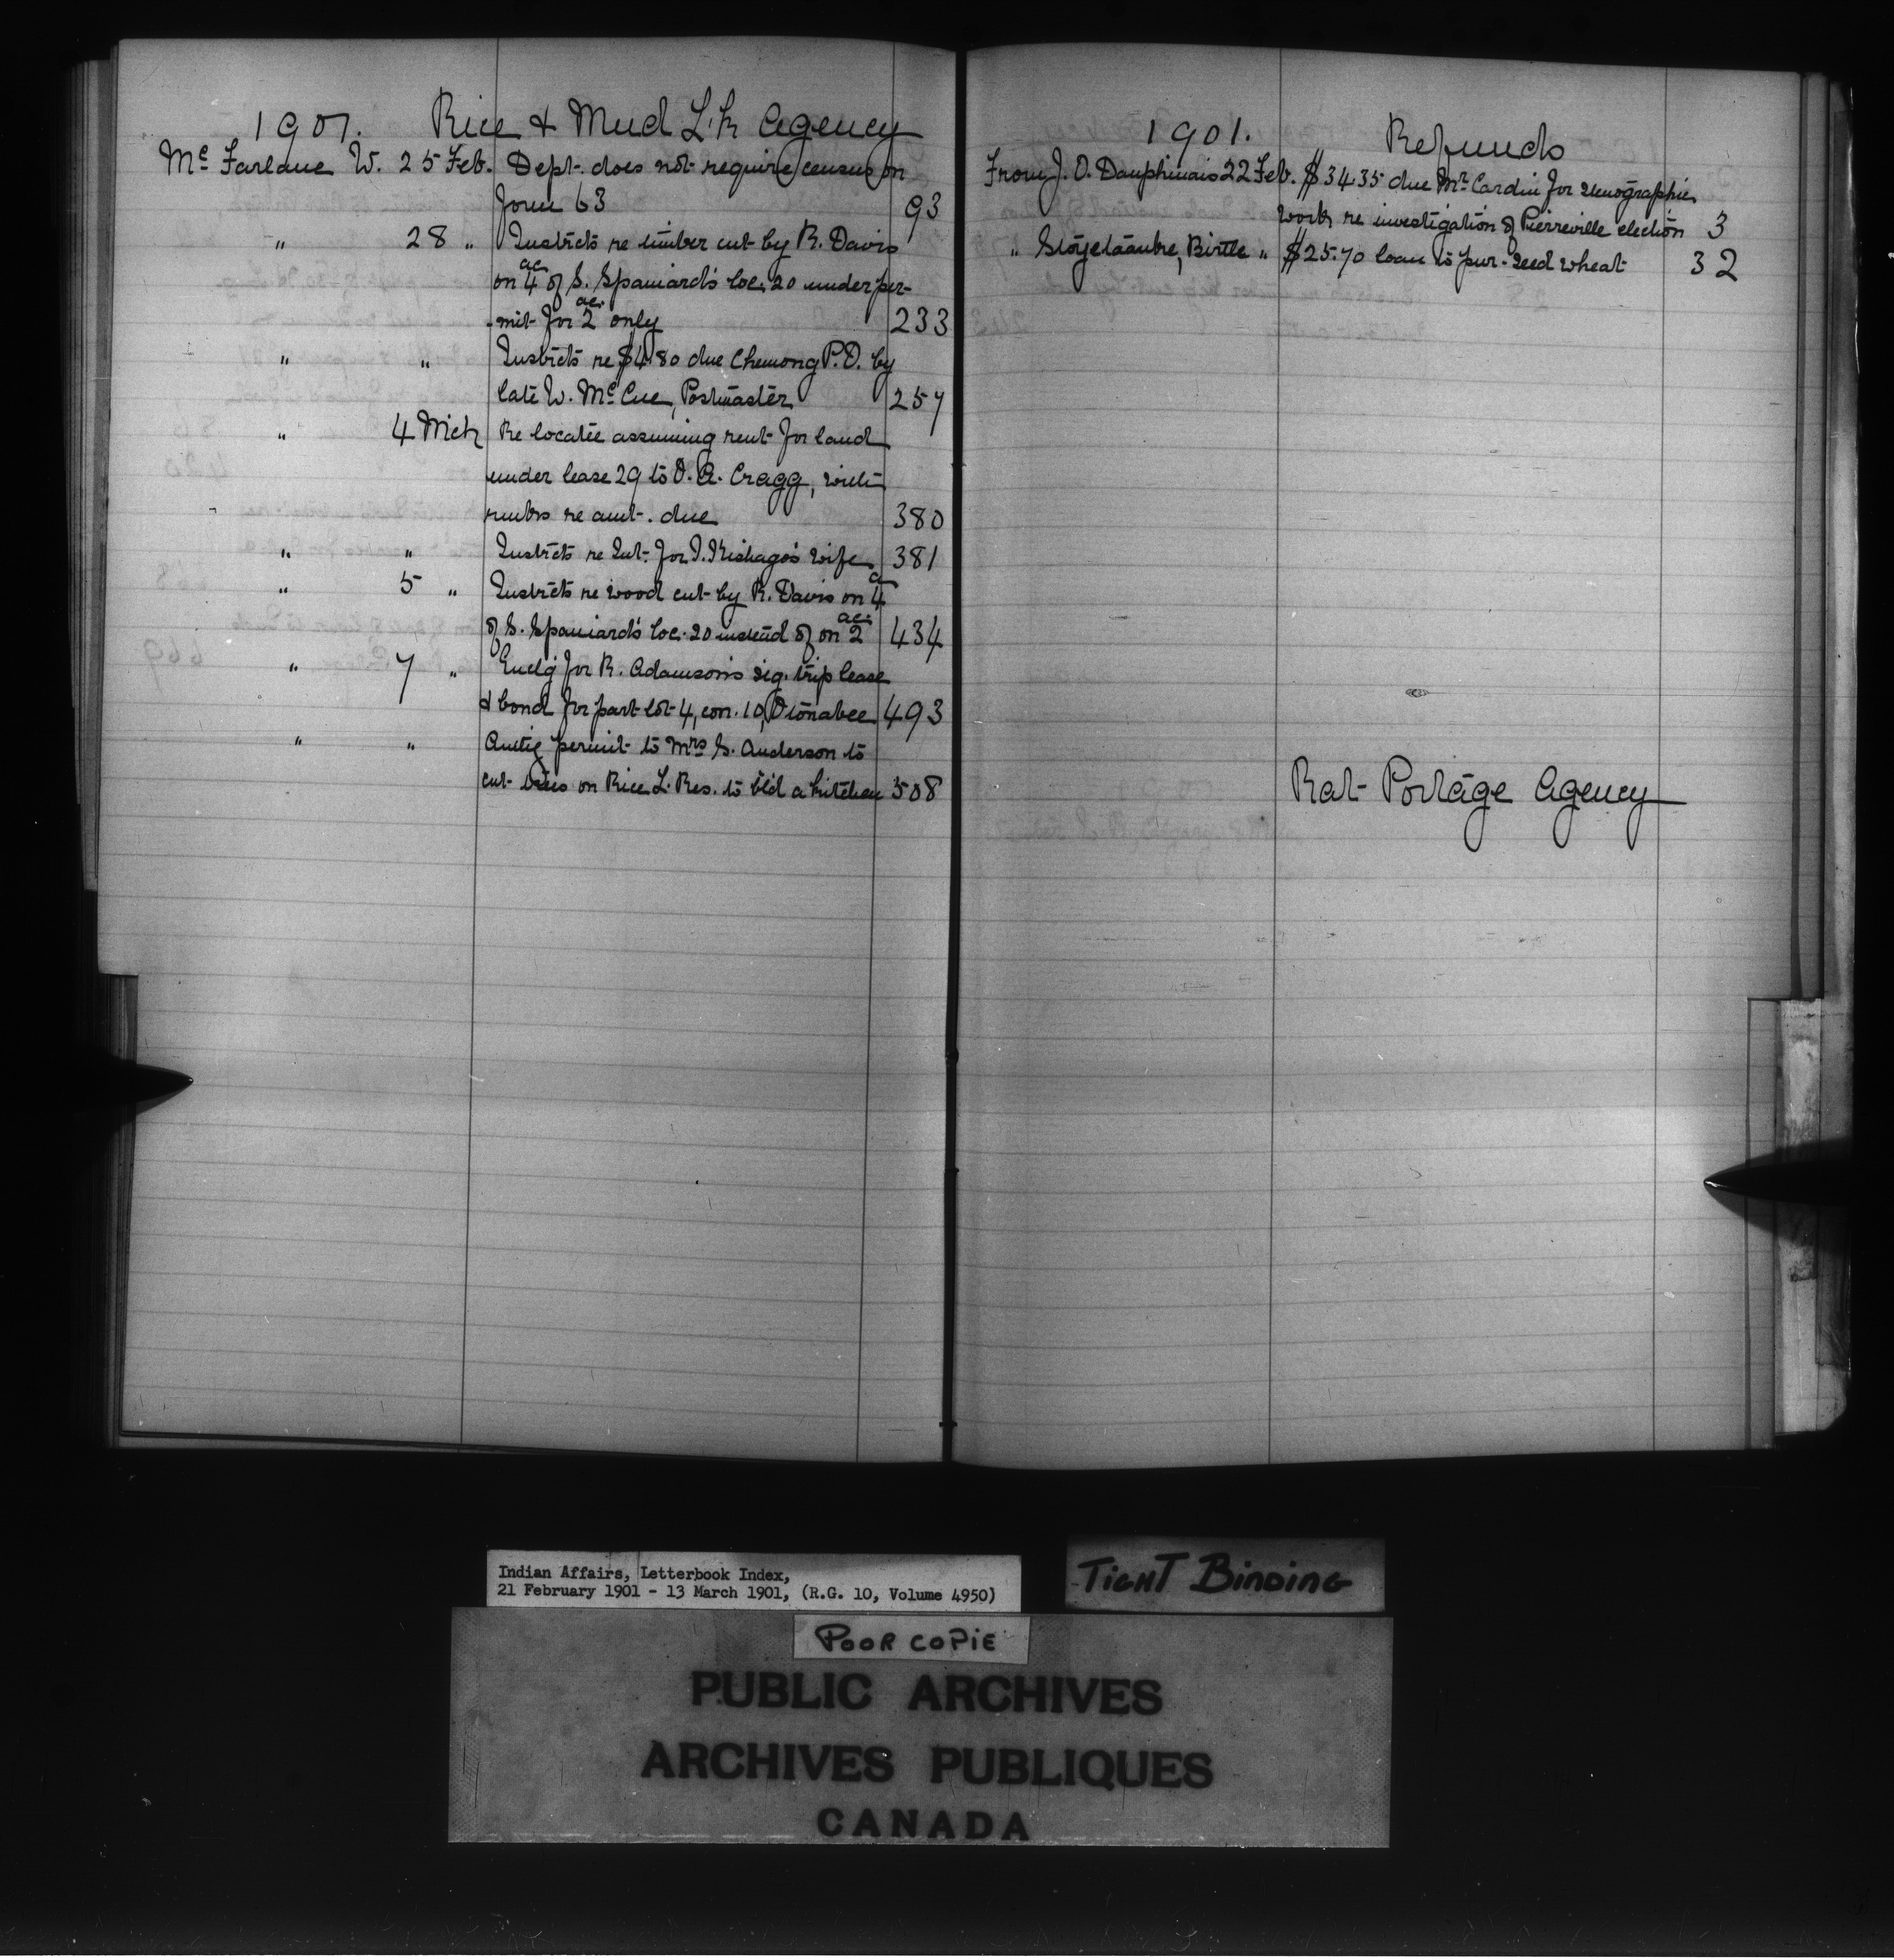 1901. Rice & Mud L'k Agency
Mc Farlane W. 25 Feb. Dept. does not require census on
form 63 93
" 28 " Instrcts re timber cut by R. Davis
on 4 ac of S. Spaniard's loc. 20 under per-
-mit for 2 ac. only 233
" " Instrcts re $4.80 due Chemong P.O. by
late W. McCue, Postmaster 257
" 4 Mch Re locatee assuming rent for land
under lease 29 to O. A. Cragg, with
rmks re amt. due 380
" " Instrcts re Int. for wife 381
" 5 " Instrcts re wood cut by R. Davis on 4 a
of S. Spaniard's loc. 20 instead of on 2 ac. 434
" 7 " Enclg for R. Adamson's sig. trip lease
& bond for part lot 4, con. 10, Otonabee 493
" " Auttg permit to Mrs S. Anderson to
cut trees on Rice L. Res. to b'ld a kitchen 508
1901. Refunds
From J. O. Dauphinais 22 Feb. $34.35 due Mr Cardin for stenographic
work re investigation of Pierreville election 3
" Birtle " $25.70 loan to pur. seed wheat 32
Rat Portage Agency
Indian Affairs, Letterbook Index,
21 February 1901 - 13 March 1901, (R.G. 10, Volume 4950)
TIGHT BINDING
POOR COPIE
PUBLIC ARCHIVES
ARCHIVES PUBLIQUES
CANADA